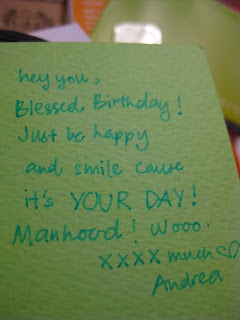 hey you,
Blessed Birthday!
Just be happy
and smile cause
it's YOUR DAY!
Manhood! Wooo.
xxxx much ♡♡
Andrea